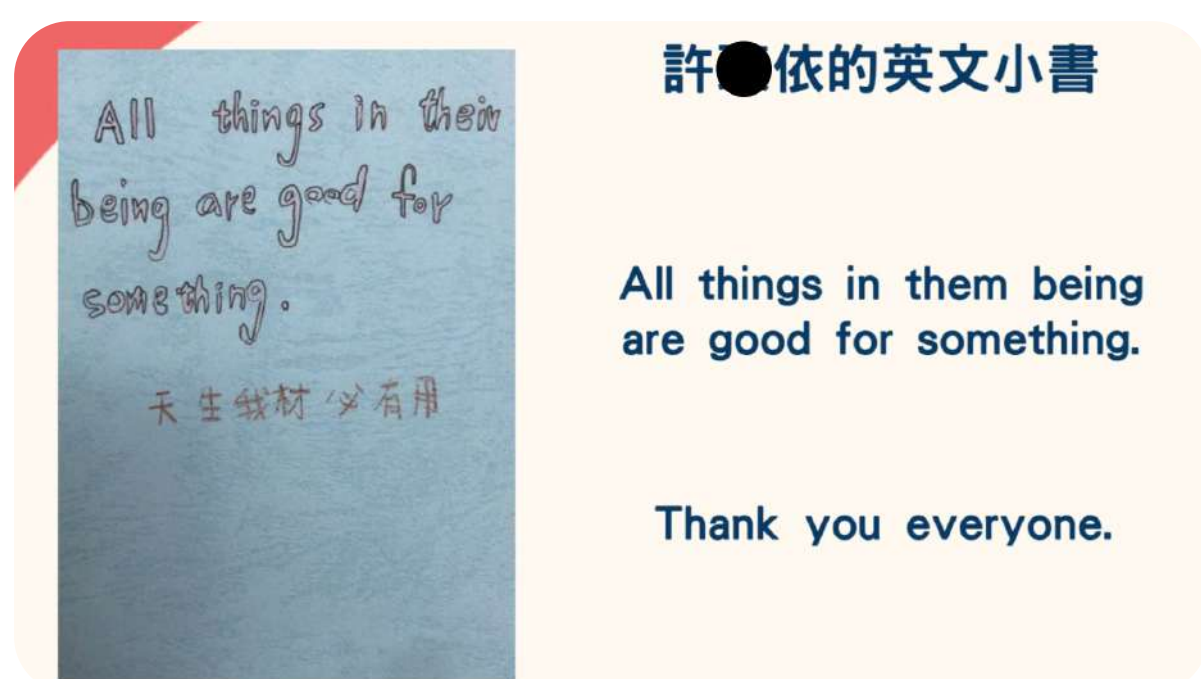 All things in their
being are good for
something.
天生我材必有用
許依的英文小書
All things in them being
are good for something.
Thank you everyone.